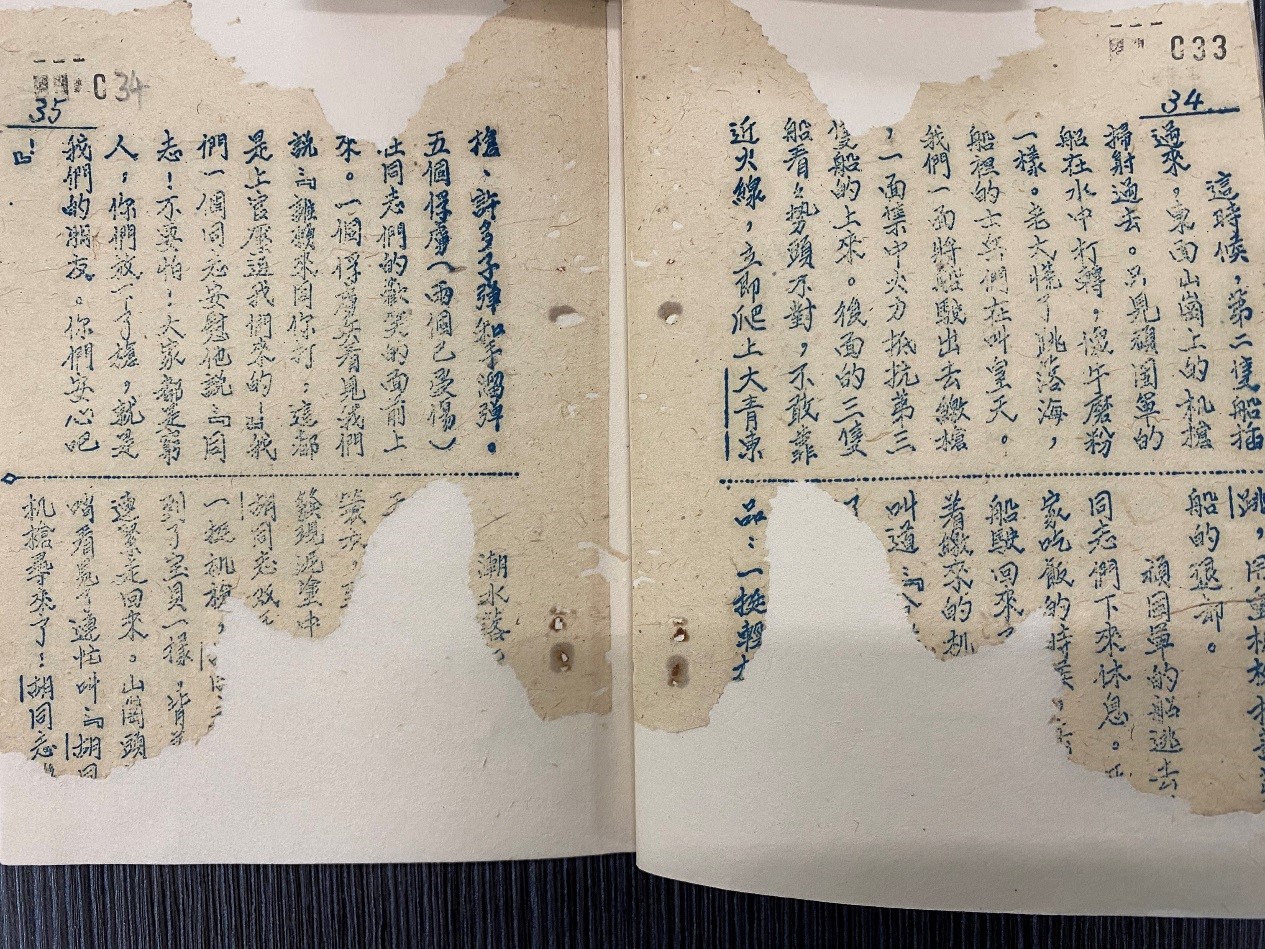 C33
34
這時候，第二隻船插
過來，東面山崗上的机槍
掃射過去。只見頑固軍的
船在水中打轉，像牛磨粉
一樣。老大慌了跳落海，
船裡的士兵們在叫皇天。
我們一面將船駛出去繳槍
，一面集中火力抵抗第三
隻船的上來。後面的三隻
船看々勢頭不對，不敢靠
近火線，立即爬上大青東
跳，
船的退部。
頑固軍的船逃去
同志們下來休息。
家吃飯的時候
船駛回來
着繳來的机
叫道
了
品：一挺輕
C34
35
槍、許多子彈和手溜彈。
五個俘虜（兩個已受傷）
在同志們的歡笑的面前上
來。一個俘虜兵看見我們
說『誰願來同你打，這都
是上官壓迫我們來的』我
們一個同志安慰他說『同
志！不要怕！大家都是窮
人，你們放下了槍，就是
我們的朋友。你們安心吧
！』
潮水落
發現泥塗中
胡同志
一挺机槍，
到了宝貝一樣，背
連緊走回來。山崗頭
哨看見了連忙叫『胡同
机槍尋來了！胡同志